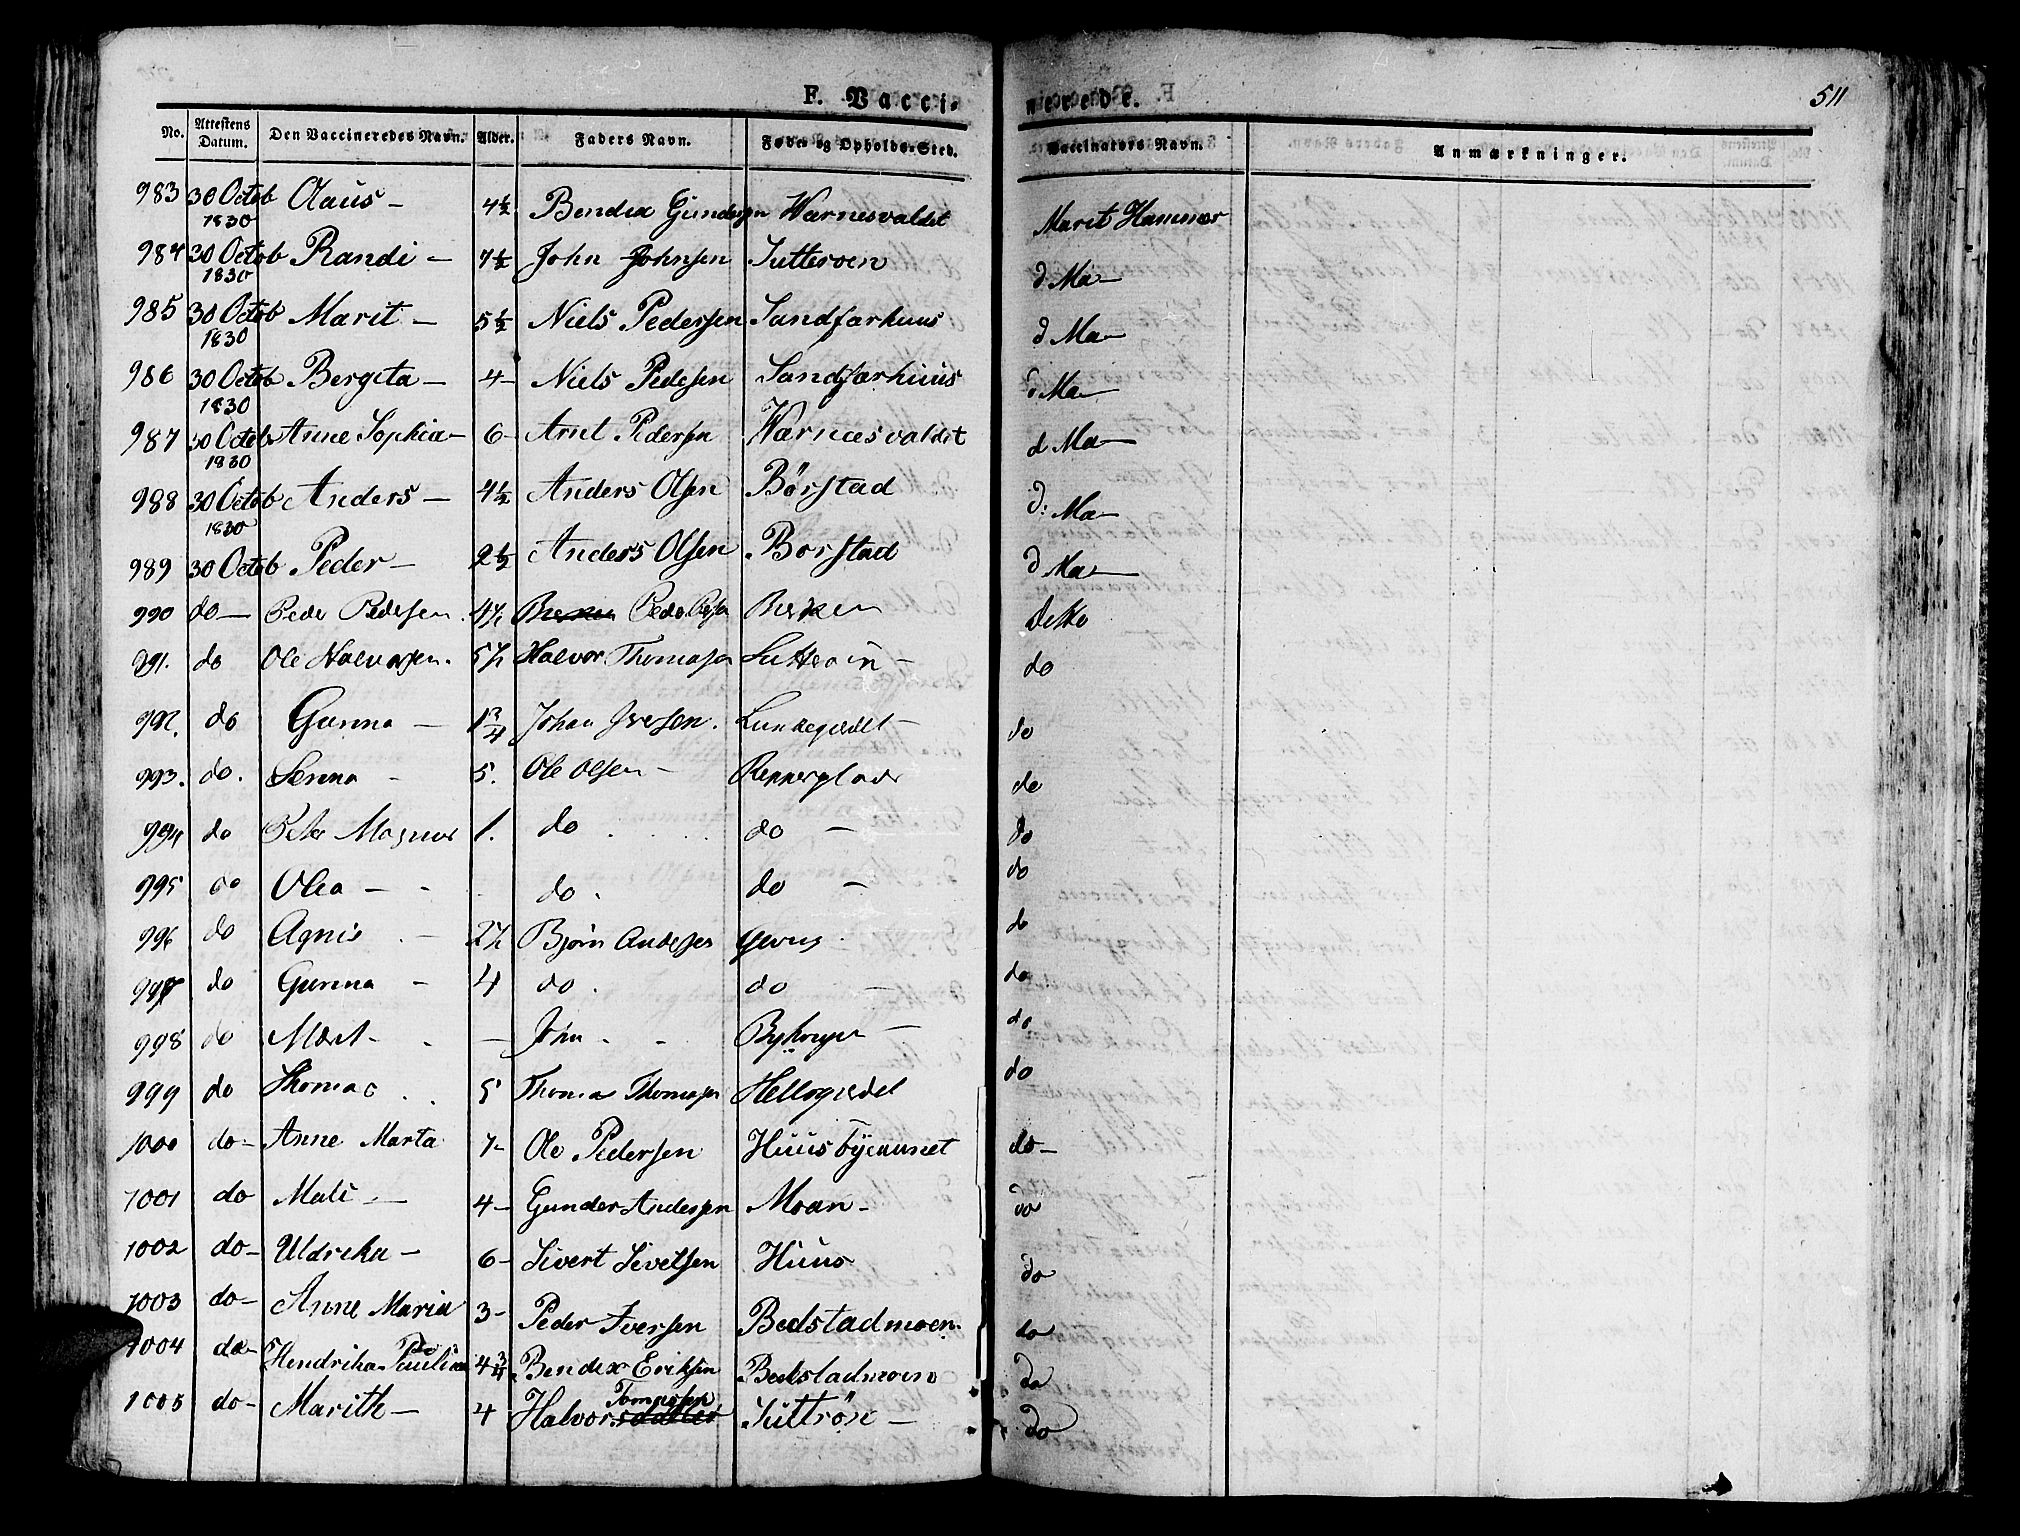 F. Vaccinerede.
511
No. Attestens Datum. Den Vaccineredes Navn. Alder. Faders Navn. Føde- og Opholds-Sted. Vaccinators Navn. Anmærkninger.
983 30 Octob 1830 Olaus - 4½ Bendix Gundersen Wærnesvaldet Marit Hamnær
984 30 Octob 1830 Randi - 7½ John Johnsen Sutterøen d Ma-
985 30 Octob 1830 Marit - 5½ Niels Pedersen Sandfærhuus d Ma-
986 30 Octob 1830 Bergeta - 4- Niels Pedersen Sandfærhuus d Ma-
987 30 Octob 1830 Anne Sophia - 6- Arnt Pedersen Wærnæsvaldet d Ma-
988 30 Octob 1830 Anders - 4½ Anders Olsen Börstad d: Ma-
989 30 Octob Peder - 2½ Anders Olsen Borstad d Ma-
990 do - Peder Pedersen 4½ Peder Birken Detto
991. do Ole Halvorsen. 5½ Halvor Thomasen Sutterøin - do
992. do Gunna - 1¾ Johan Iversen. Lundegjerdet - do
993. do. Serina - 5. Ole Olsen - do
994 do Peter Magnus 1. do do - do
995 do Olea - - do. do - do
996 do Agnis - 2½ Bjørn Andersen do
997 do Gunna - 4 do. do - do
998 do Marit - - John - - do
999 do Thomas 5 Thomas Thomasen Hellegjerdet do
1000 do- Anne Marta 7- Ole Pedersen Huusbyemnet do-
1001 do Mali - 4- Gunder Andersen Moan - do
1002 do- Uldrika - 6- Sivert Sivetsen Huus do
1003 do- Anne Maria 3- Peder Iversen Bedstadmoen. do
1004 do- Hendrika Paulina 4¾ Bendix Eriksen Bedstadmoen do
1005 do- Marith - 4 Halvor Tomassen Suttröen - do